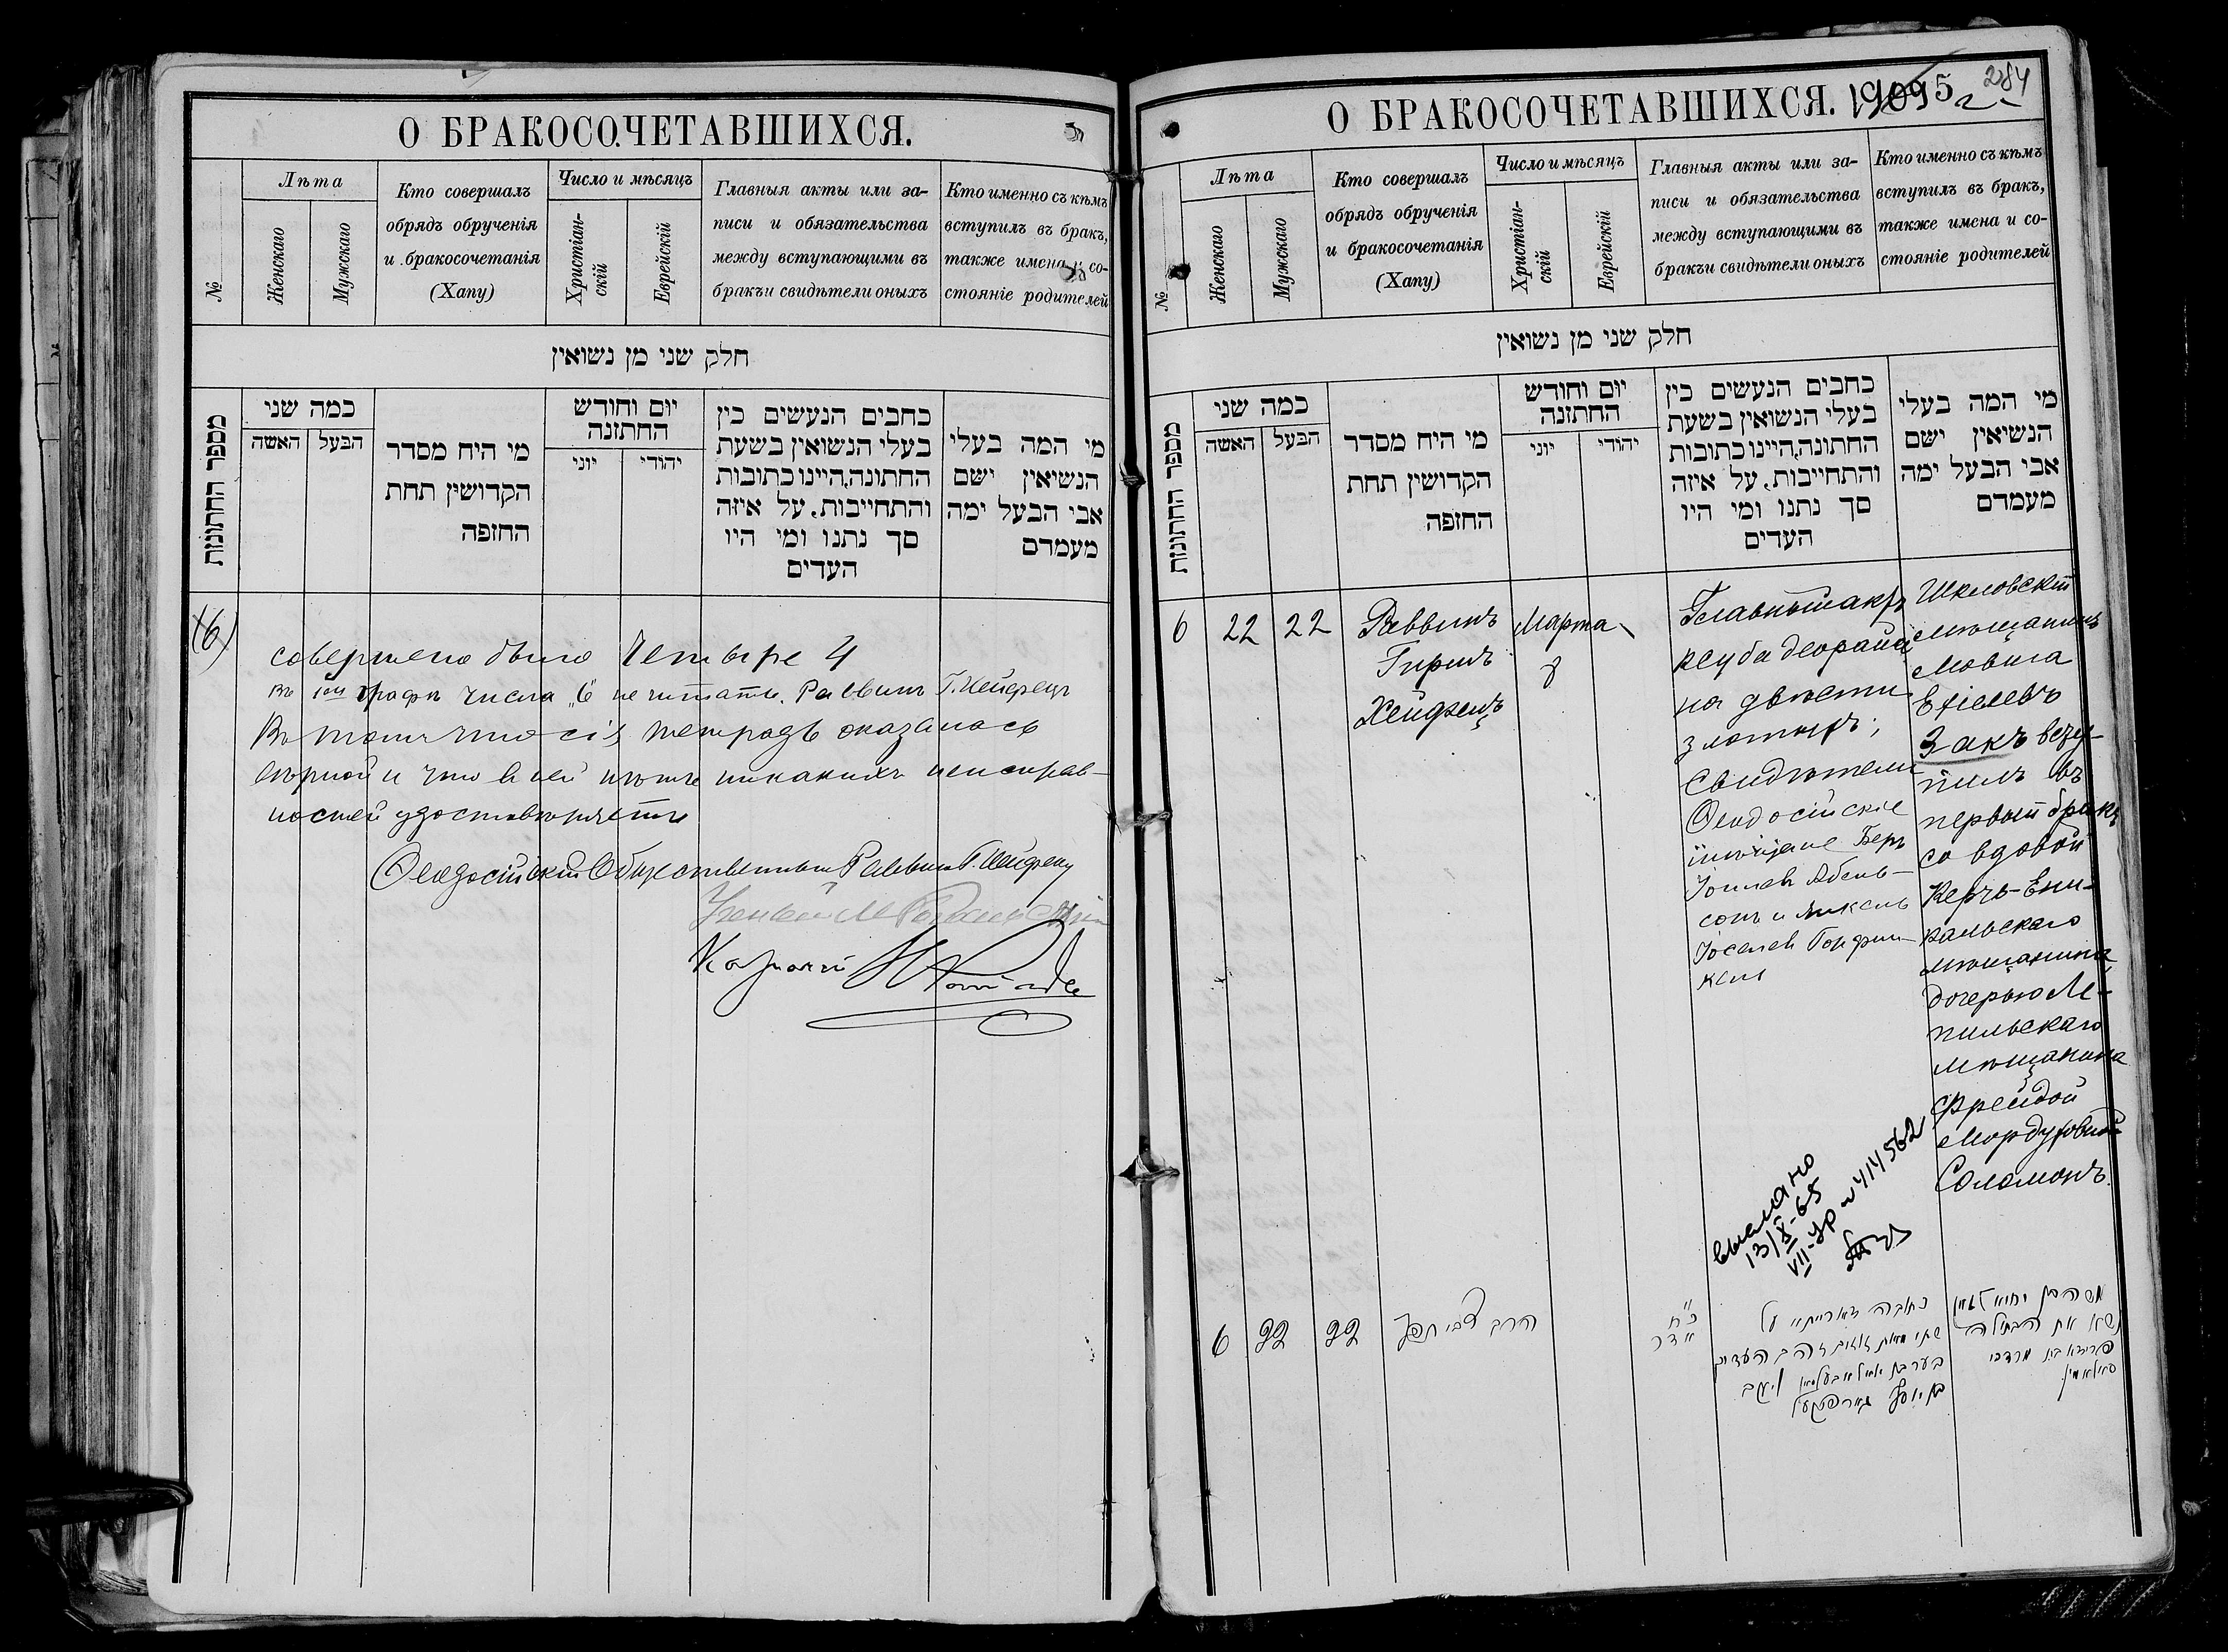 О БРАКОСОЧЕТАВШИХСЯ.
№
Лѣта
Женскаго
Мужскаго
Кто совершалъ
обрядъ обрученія
и бракосочетанія
(Хапу)
Число и мѣсяцъ
Христіан-
скій
Еврейскій
Главныя акты или за-
писи и обязательства
между вступающими въ
бракъи свидѣтели оныхъ
Кто именно съ кѣмъ
вступилъ въ бракъ,
также имена и со-
стояніе родителей
חלק שני מן נשואין
מספר החתונות
כמה שני
האשה
הבעל
מי היח מסדר
הקדושין תחת
החופה
יום וחודש
החתונה
יוני
יהודי
כתבים הנעשים בין
בעלי הנשואין בשעת
החתונה,היינו כתובות
והתחייבות, על איזה
סך נתנו ומי היו
העדים
מי המה בעלי
הנשיאין ישם
אבי הבעל ימה
מעמדם
(6)
совершено было Четыре 4
въ 1ой графѣ числа „6 не читать. Раввинъ Г. Хейфецъ
Въ томъ что сія тетрадь оказалась
вѣрной и что в ней нѣтъ никакихъ неисправ-
ностей удостовѣряетъ
Ѳеодосійскій Общественный Раввинъ Г. Хейфецъ
Ученый
Казначей
О БРАКОСОЧЕТАВШИХСЯ. 1905 г. 284
№
Лѣта
Женскаго
Мужскаго
Кто совершалъ
обрядъ обрученія
и бракосочетанія
(Хапу)
Число и мѣсяцъ
Христіан-
скій
Еврейскій
Главныя акты или за-
писи и обязательства
между вступающими въ
бракъи свидѣтели оныхъ
Кто именно съ кѣмъ
вступилъ въ бракъ,
также имена и со-
стояніе родителей
חלק שני מן נשואין
מספר החתונות
כמה שני
האשה
הבעל
מי היח מסדר
הקדושין תחת
החופה
יום וחודש
החתונה
יוני
יהודי
כתבים הנעשים בין
בעלי הנשואין בשעת
החתונה,היינו כתובות
והתחייבות, על איזה
סך נתנו ומי היו
העדים
מי המה בעלי
הנשיאין ישם
אבי הבעל ימה
מעמדם
6
22
22
Раввинъ
Гиршъ
Хейфецъ
Марта
8
Главный актъ
кеуба деорайса
на двѣсти
злотыхъ;
Свидѣтели
Ѳеодосійскіе
мѣщане Беръ
Іоилевъ Абель-
сонъ и Янкель
Іоселевъ Горфин-
кель
Шкловскій
мѣщанинъ
Мовша
Ехіелевъ
Закъ всту-
пилъ въ
первый бракъ
со вдовой
Керчь-Ени-
кальскаго
мѣщанина,
дочерью Ле-
пильскаго
мѣщанина
Фрейдой
Мордуховной
Соломонъ.
выслано
13/X-65
VII-УР № 414562
6
22
22
הרב צבי חפץ
כ״ח
אדר
כתובה דאורייתא על
שתי מאות זאוב זהב העדים
בער בן יואל אבעלסאן ויעקב
בן יוסף גארפינקעל
משה בן יחיאל זאק
נשא את הבתולה
פריידא בת מרדכי
סאלאמון